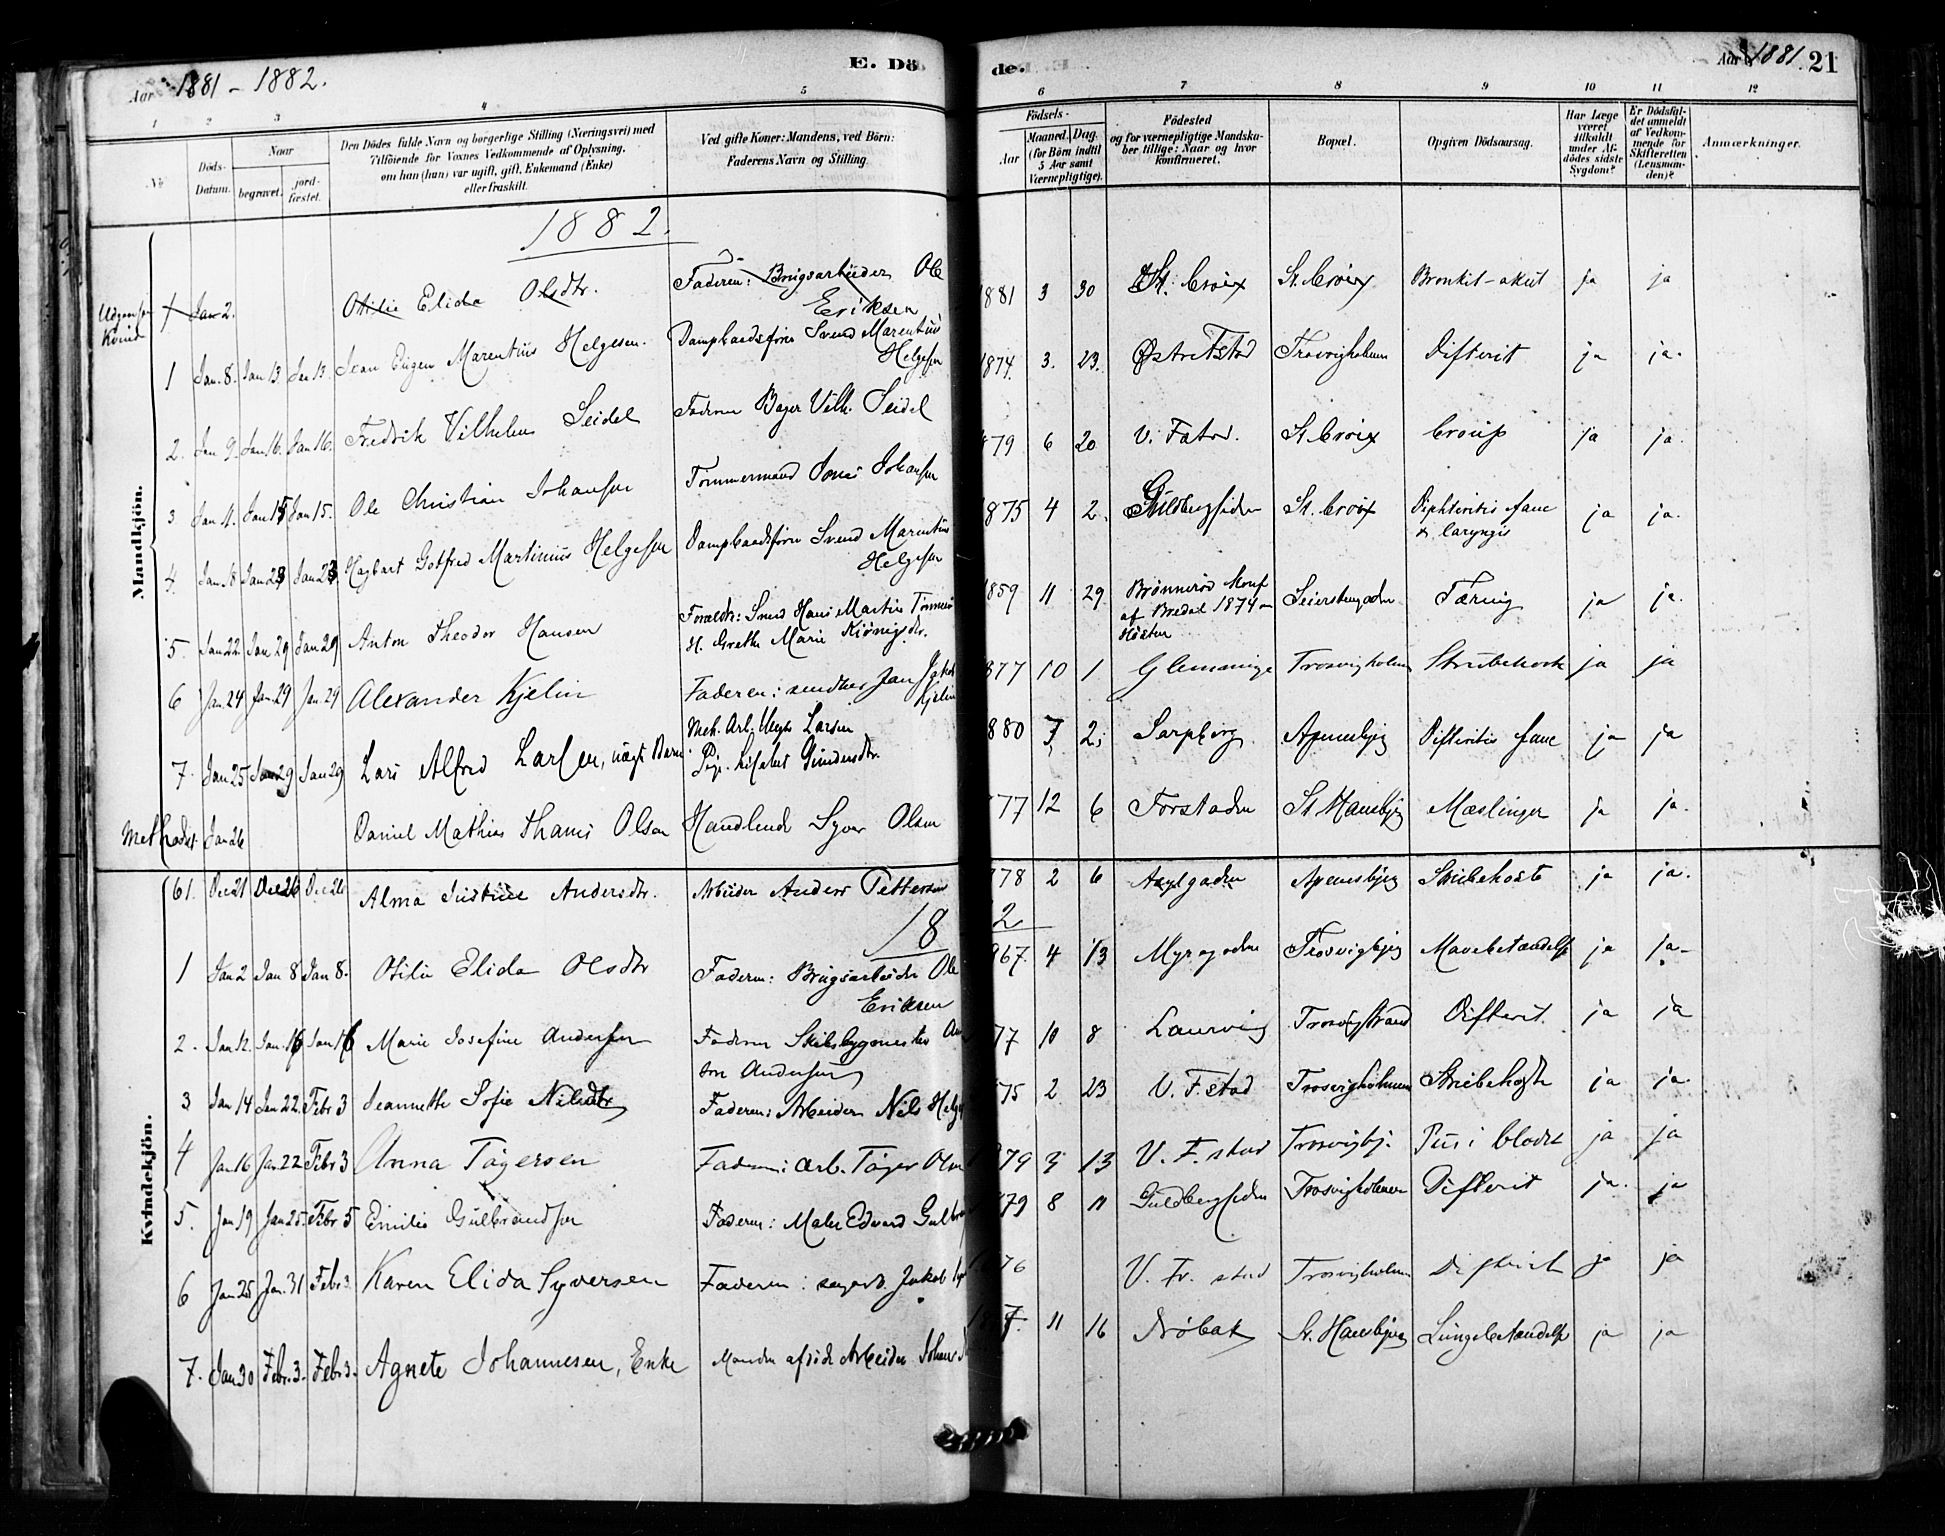 Aar 1881 - 1882.
E. Dö
de.
Aar 1881. 21
1 2 3 4 5 6 7 8 9 10 11 12
No.
Döds-Datum.
Naar
begravet.
jord-fæstet.
Den Dödes fulde Navn og borgerlige Stilling (Næringsvei) med
Tilföiende for Voxnes Vedkommende af Oplysning,
om han (hun) var ugift, gift, Enkemand (Enke)
eller fraskilt.
Ved gifte Koner: Mandens, ved Börn:
Faderens Navn og Stilling.
Födsels-
Aar
Maaned. Dag.
(for Börn indtil
5 Aar samt
Værnepligtige).
Födested
og for værnepligtige Mandska-
ber tillige: Naar og hvor
konfirmeret.
Bopæl.
Opgiven Dödsaarsag.
Har Læge
været
tilkaldt
under Af-
dödes sidste
Sygdom?
Er Dödsfal-
det anmeldt
af Vedkom-
mende for
Skifteretten
(Lensman-
den)?
Anmærkninger.
1882.
Mandkjön.
Kvinde
Jan 2. Otilie Elida Olsdtr. Faderen: Brugsarbeider Ole
Eriksen
1881 3 30 St. Croix St. Croix Bronkit-akut ja ja
1 Jan. 8. Jan 13. Jan 13. Jean Eugen Marentius Helgesen. Dampbaadsfører Svend Marentius
Helgesen
1874. 3. 23. Trosvigholmen Difterit ja ja.
2. Jan 9. Jan 16. Jan 16. Fredrik Vilhelm Seidel Faderen Bager Vilh. Seidel
79 6 20 V. Fstad. St. Croix Croup ja ja.
3 Jan 11. Jan 15 Jan 15. Ole Christian Johansen Tømmermand Johansen
875 4 2. Guldbergsiden St. Croix Diphteritis fauc
& laryngis ja ja.
4. Jan 18 Jan 23 Jan 23. Hagbart Gotfred Martinius Helgesen Dampbaadsfører Svend Marentius
Helgesen
5. Jan 22. Jan 29 Jan 29 Anton Theodor Hansen Forældr: Smed Hans Martin
H. Grethe Marie
859 11 29. Brønnerød Konf
af Bredal 1874
Høsten Seiersborgaden Tæring ja ja.
6 Jan. 24 Jan. 29 Jan. 29 Alexander Kjelin Faderen: Jan Jakob
Kjelin
877 10 1 Glemminge Trosvigholmen Strubehoste ja ja
7. Jan 25 Jan 29 Jan 29 Lars Alfred Larsen, uægt Barn. Mek. Arb. Larsen
Pige
880 7 2. Sarpsborg. Apenesbjerg Difteritis fauc ja ja
Methodist. Jan 26 Daniel Mathias Thams Olsen Handlende Syver Olsen
77 12 6 Forstaden St Hansbjerg Mæslinger ja ja.
Kvindekjön.
61. Dec 21 Dec 26 Dec 26 Alma Justine Andersdtr. Arbeider Anders Pettersen
78 2 6 Apenesbjerg Strubehoste ja ja.
18 2
1 Jan 2 Jan 8 Jan 8. Otilie Elida Olsdtr Faderen: Brugsarbeider Ole
Eriksen
67. 4 13 Myrgaden Trosvigbjerg Mavebetændelse ja ja
2. Jan 12. Jan. 16 Jan 16 Marie Josefine Andersen Faderen Skibsbygmester An
ton Andersen
77 10 8 Laurvig Trosvigstrand Difterit. ja ja
3 Jan 14 Jan 22. Febr 3 Jeannette Sofie Nilsdtr Faderen: Arbeider Nils Helg
75 2 23 V. F.stad Trosvigholmen Strubehoste ja ja.
4 Jan 16 Jan 22 Febr 3 Anna Tøgersen Faderen: Arb. Tøger Olsen
79 3 13 V. F. stad Trosvigbj. Pus i blodet ja ja
5. Jan 19 Jan 25. Febr 5 Emilie Gulbrandsen Faderen: Maler Edvard Gulbr
79 8 11 Guldbergsiden Trosvigholmen Difterit ja. ja
6 Jan 25 Jan. 31 Febr 3. Karen Elida Syversen Faderen: Jakob Sy
76 V. Fr. stad Trosvigholmen Difterit ja ja
7. Jan 30 Febr. 3. Febr 3. Agnete Johannesen, Enke Manden afdøde Arbeider Johans
11 16 Drøbak St. Hansbjerg Lungebetændelse ja ja